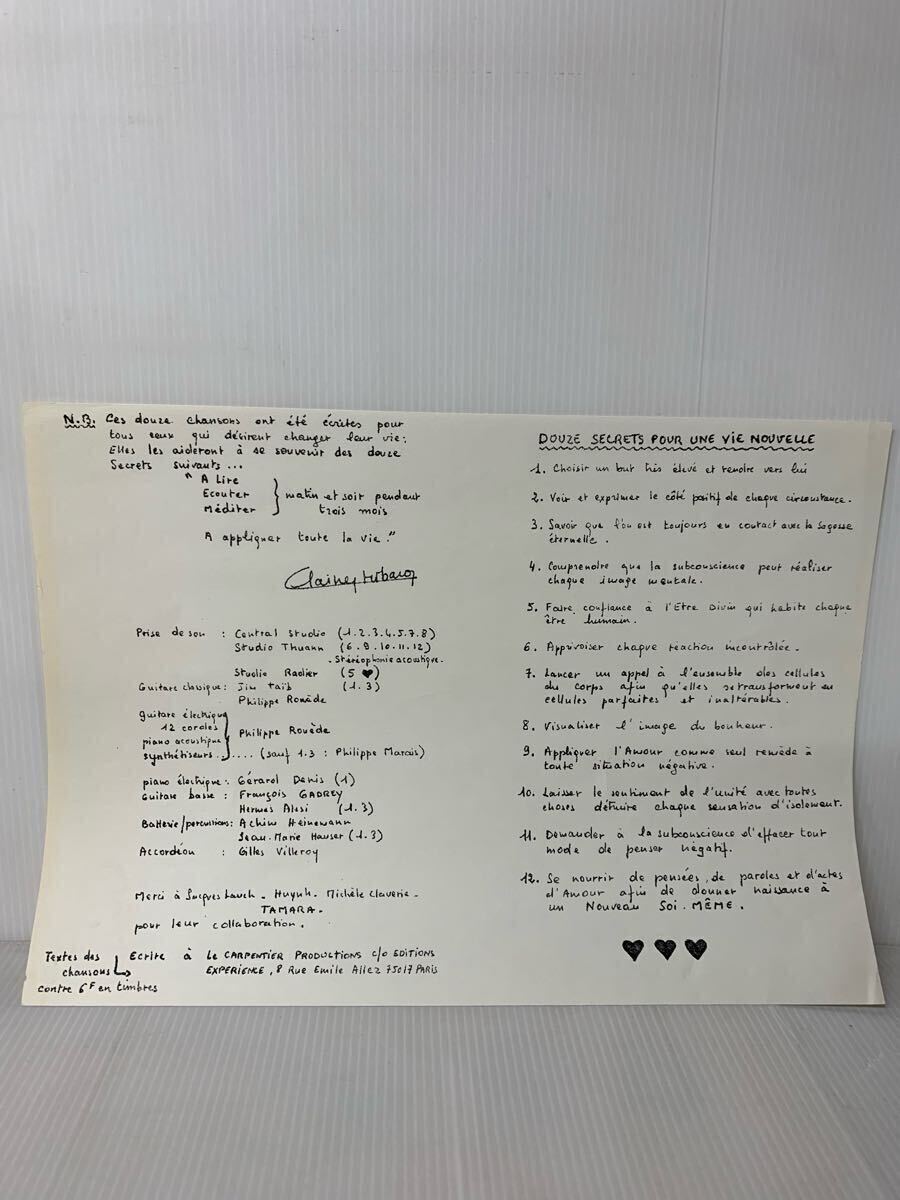 N.B. Ces douze chansons ont été écrites pour
tous ceux qui désirent changer leur vie:
Elles les aideront à se souvenir des douze
Secrets suivants...
" A Lire
Ecouter
Méditer
matin et soir pendant
trois mois
A appliquer toute la vie."
Prise de son : Central Studio (1.2.3.4.5.7.8)
Studio Thuann (6.9.10.11.12)
. Stéréophonie acoustique.
Studio Radier (5 ♥)
Guitare classique: Jim Taïb (1.3)
Philippe Rouède
guitare électrique
12 cordes
piano acoustique
synthétiseurs
Philippe Rouède
.... (sauf 1.3 : Philippe Marais)
piano électrique: Gérard Denis (1)
Guitare basse : François GADREY
Hermes Alesi (1.3)
Batterie/percussions: Achim Heinemann
Jean-Marie Hauser (1.3)
Accordéon : Gilles Villeroy
Merci à Jacques Lauch - Huynh - Michèle Claverie -
TAMARA -
pour leur collaboration.
Textes des chansons
Ecrire à Le CARPENTIER PRODUCTIONS C/O EDITIONS
EXPERIENCE, 8 Rue Emile Allez 75017 PARIS
contre 6F en timbres
DOUZE SECRETS POUR UNE VIE NOUVELLE
1. Choisir un but très élevé et tendre vers lui
2. Voir et exprimer le côté positif de chaque circonstance.
3. Savoir que l'on est toujours en contact avec la sagesse
éternelle.
4. Comprendre que la subconscience peut réaliser
chaque image mentale.
5. Faire confiance à l'Etre Divin qui habite chaque
être humain.
6. Apprivoiser chaque réaction incontrôlée.
7. Lancer un appel à l'ensemble des cellules
du corps afin qu'elles se transforment en
cellules parfaites et inaltérables.
8. Visualiser l'image du bonheur.
9. Appliquer l'Amour comme seul remède à
toute situation négative.
10. Laisser le sentiment de l'unité avec toutes
choses détruire chaque sensation d'isolement.
11. Demander à la subconscience d'effacer tout
mode de penser négatif.
12. Se nourrir de pensées, de paroles et d'actes
d'Amour afin de donner naissance à
un Nouveau Soi-MÊME.